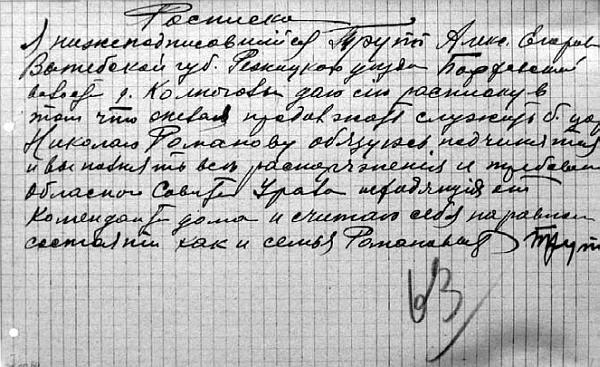 Расписка
Я нижеподписавшийся Трупп Алекс. Егоров
Витебской губ. Режицкого уезда Борховской
волости д. Колногово даю сію расписку в
том что желая продолжать служить б. царю
Николаю Романову обязуюсь подчинятся
и выполнять все распоряжения и требован
областного Совета Урала исходящия от
коменданта дома и считаю себя на равном
состоянии как и семья Романовых Трупп